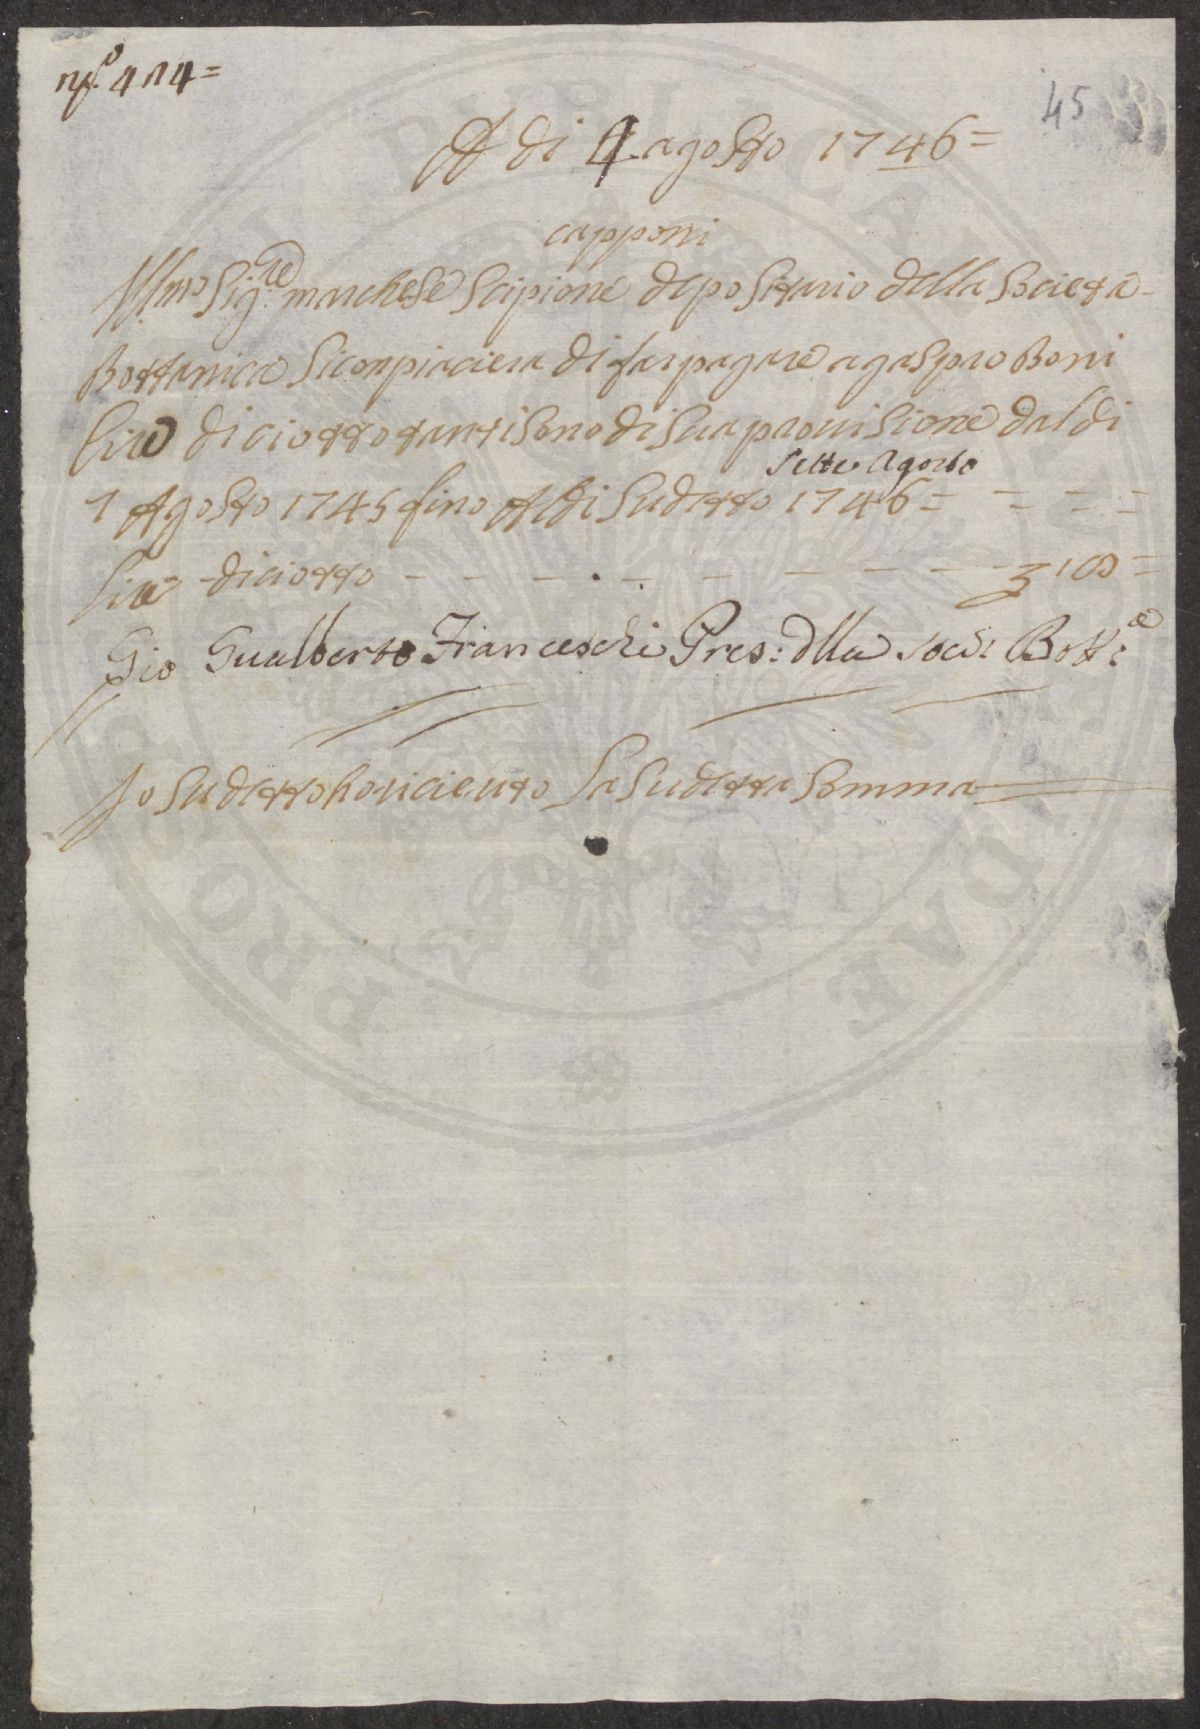 n.º 414=
45
A di 4 agosto 1746=
capponi
Ill.mo Sig.re marchese Scipione depositario della Societa
Bottanica Si conpiaciera di far pagare a gaspro Boni
lire diciotto tanti Sono di Sua provisione dal di
Sette Agosto
7 Agosto 1745 fino Al di Sudetto 1746= = = =
lire diciotto 18=
Gio Gualberto Franceschi Pres: dlla Soc: Bott:e
Io Sudetto ho riceuto La Sudetta Somma